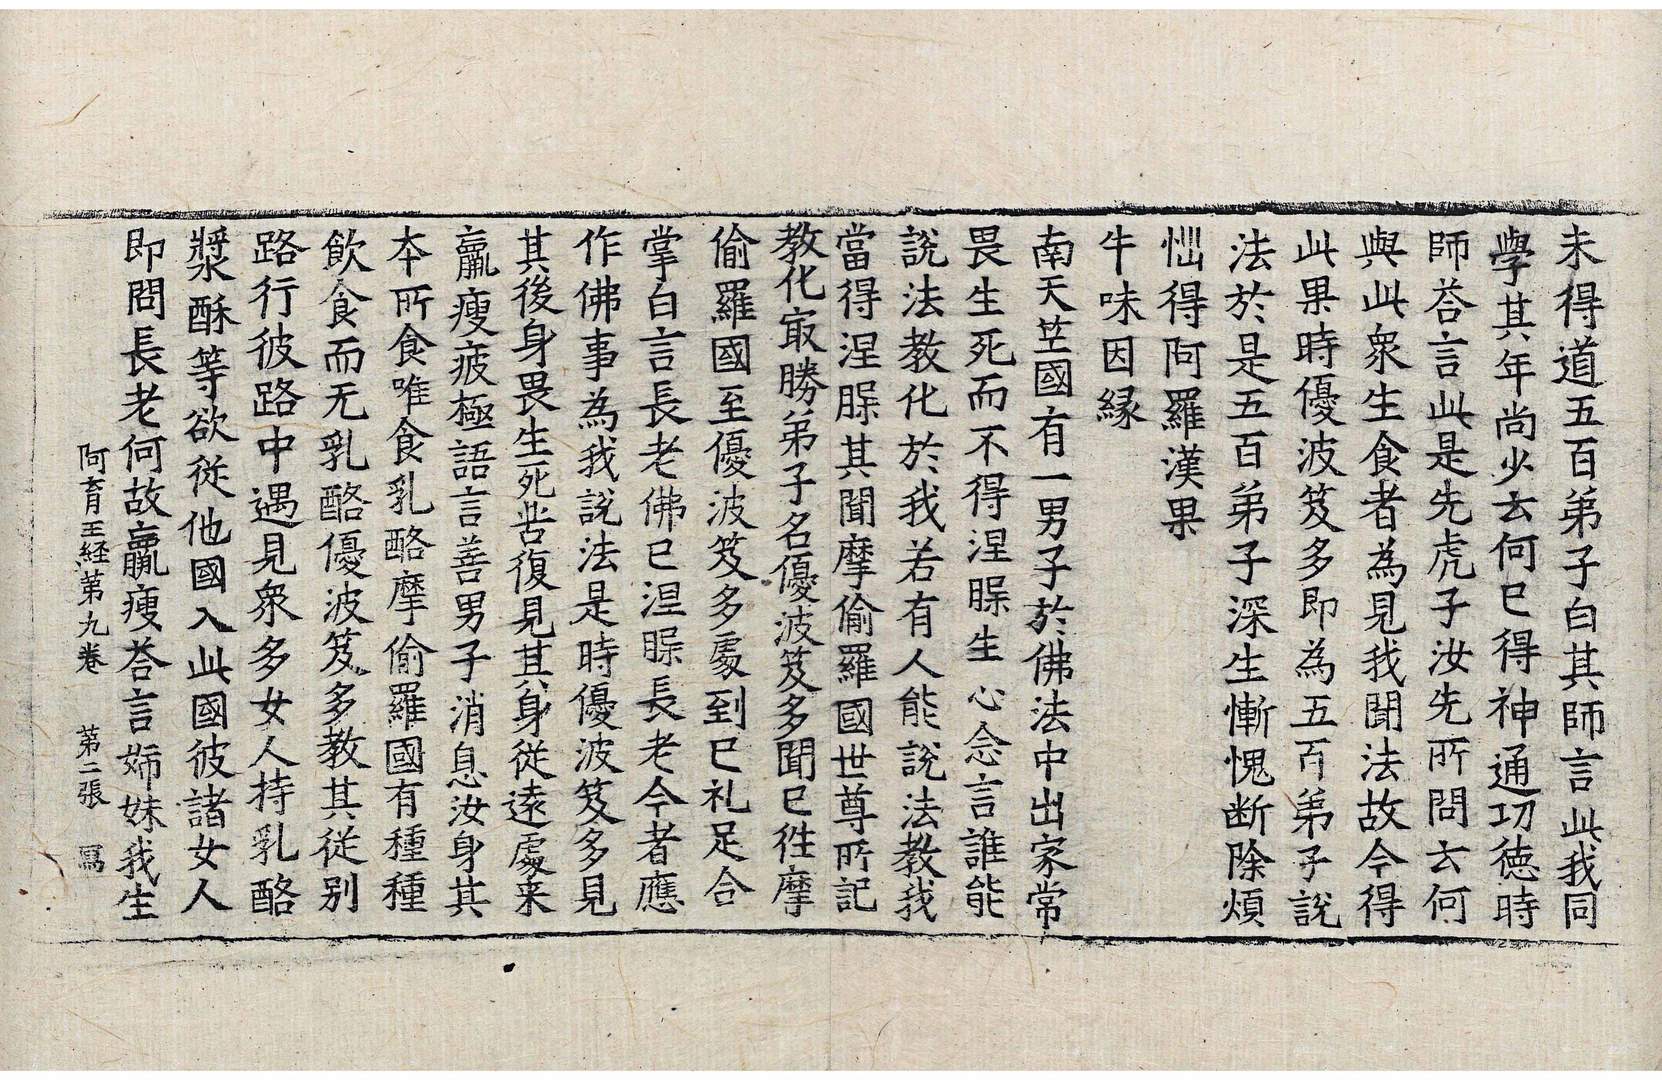 未得道五百弟子白其師言此我同
學其年尚少云何已得神通功德時
師荅言此是先虎子汝先所問云何
與此衆生食者為見我聞法故今得
此果時優波笈多即為五百弟子說
法於是五百弟子深生慚愧断除煩
惱得阿羅漢果
牛味因縁
南天竺國有一男子於佛法中出家常
畏生死而不得涅腺生心念言誰能
說法教化於我若有人能說法教我
當得涅腺其聞摩偷羅國世尊所記
教化㝡勝弟子名優波笈多聞已徃摩
偷羅國至優波笈多處到已礼足合
掌白言長老佛已涅腺長老今者應
作佛事為我說法是時優波笈多見
其後身畏生死苦復見其身従遠處来
羸瘦疲極語言善男子消息汝身其
本所食唯食乳酪摩偷羅國有種種
飲食而无乳酪優波笈多教其従别
路行彼路中遇見衆多女人持乳酪
漿酥等欲従他國入此國彼諸女人
即問長老何故羸瘦荅言姉妹我生
阿育王経第九卷 第二張 冩